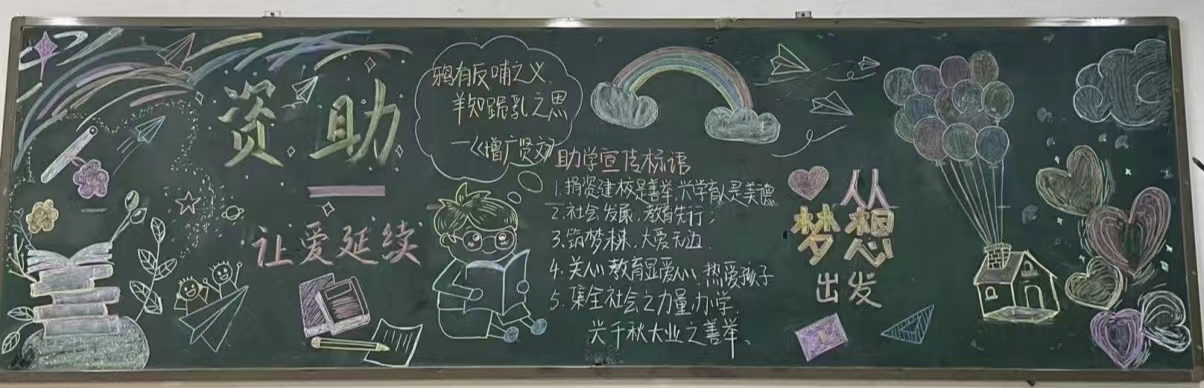 资助
让爱延续
鸦有反哺之义
羊知跪乳之恩
—《增广贤文》
助学宣传标语
1.捐资建校是善举,兴学育人是美德
2.社会发展,教育先行;
3.筑梦未来、大爱无边.
4.关心教育显爱心,热爱孩子
5.集全社会之力量,办学
兴千秋大业之善举、
从
梦想
出发